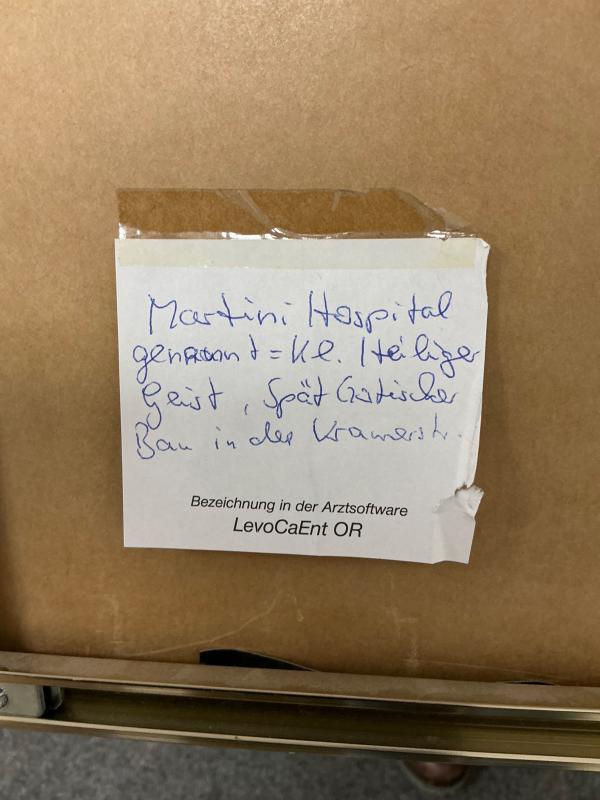 Martini Hospital
genannt = Kl. Heiliger
Geist, Spät Gotischer
Bau in der Kramerstr.
Bezeichnung in der Arztsoftware
LevoCaEnt OR